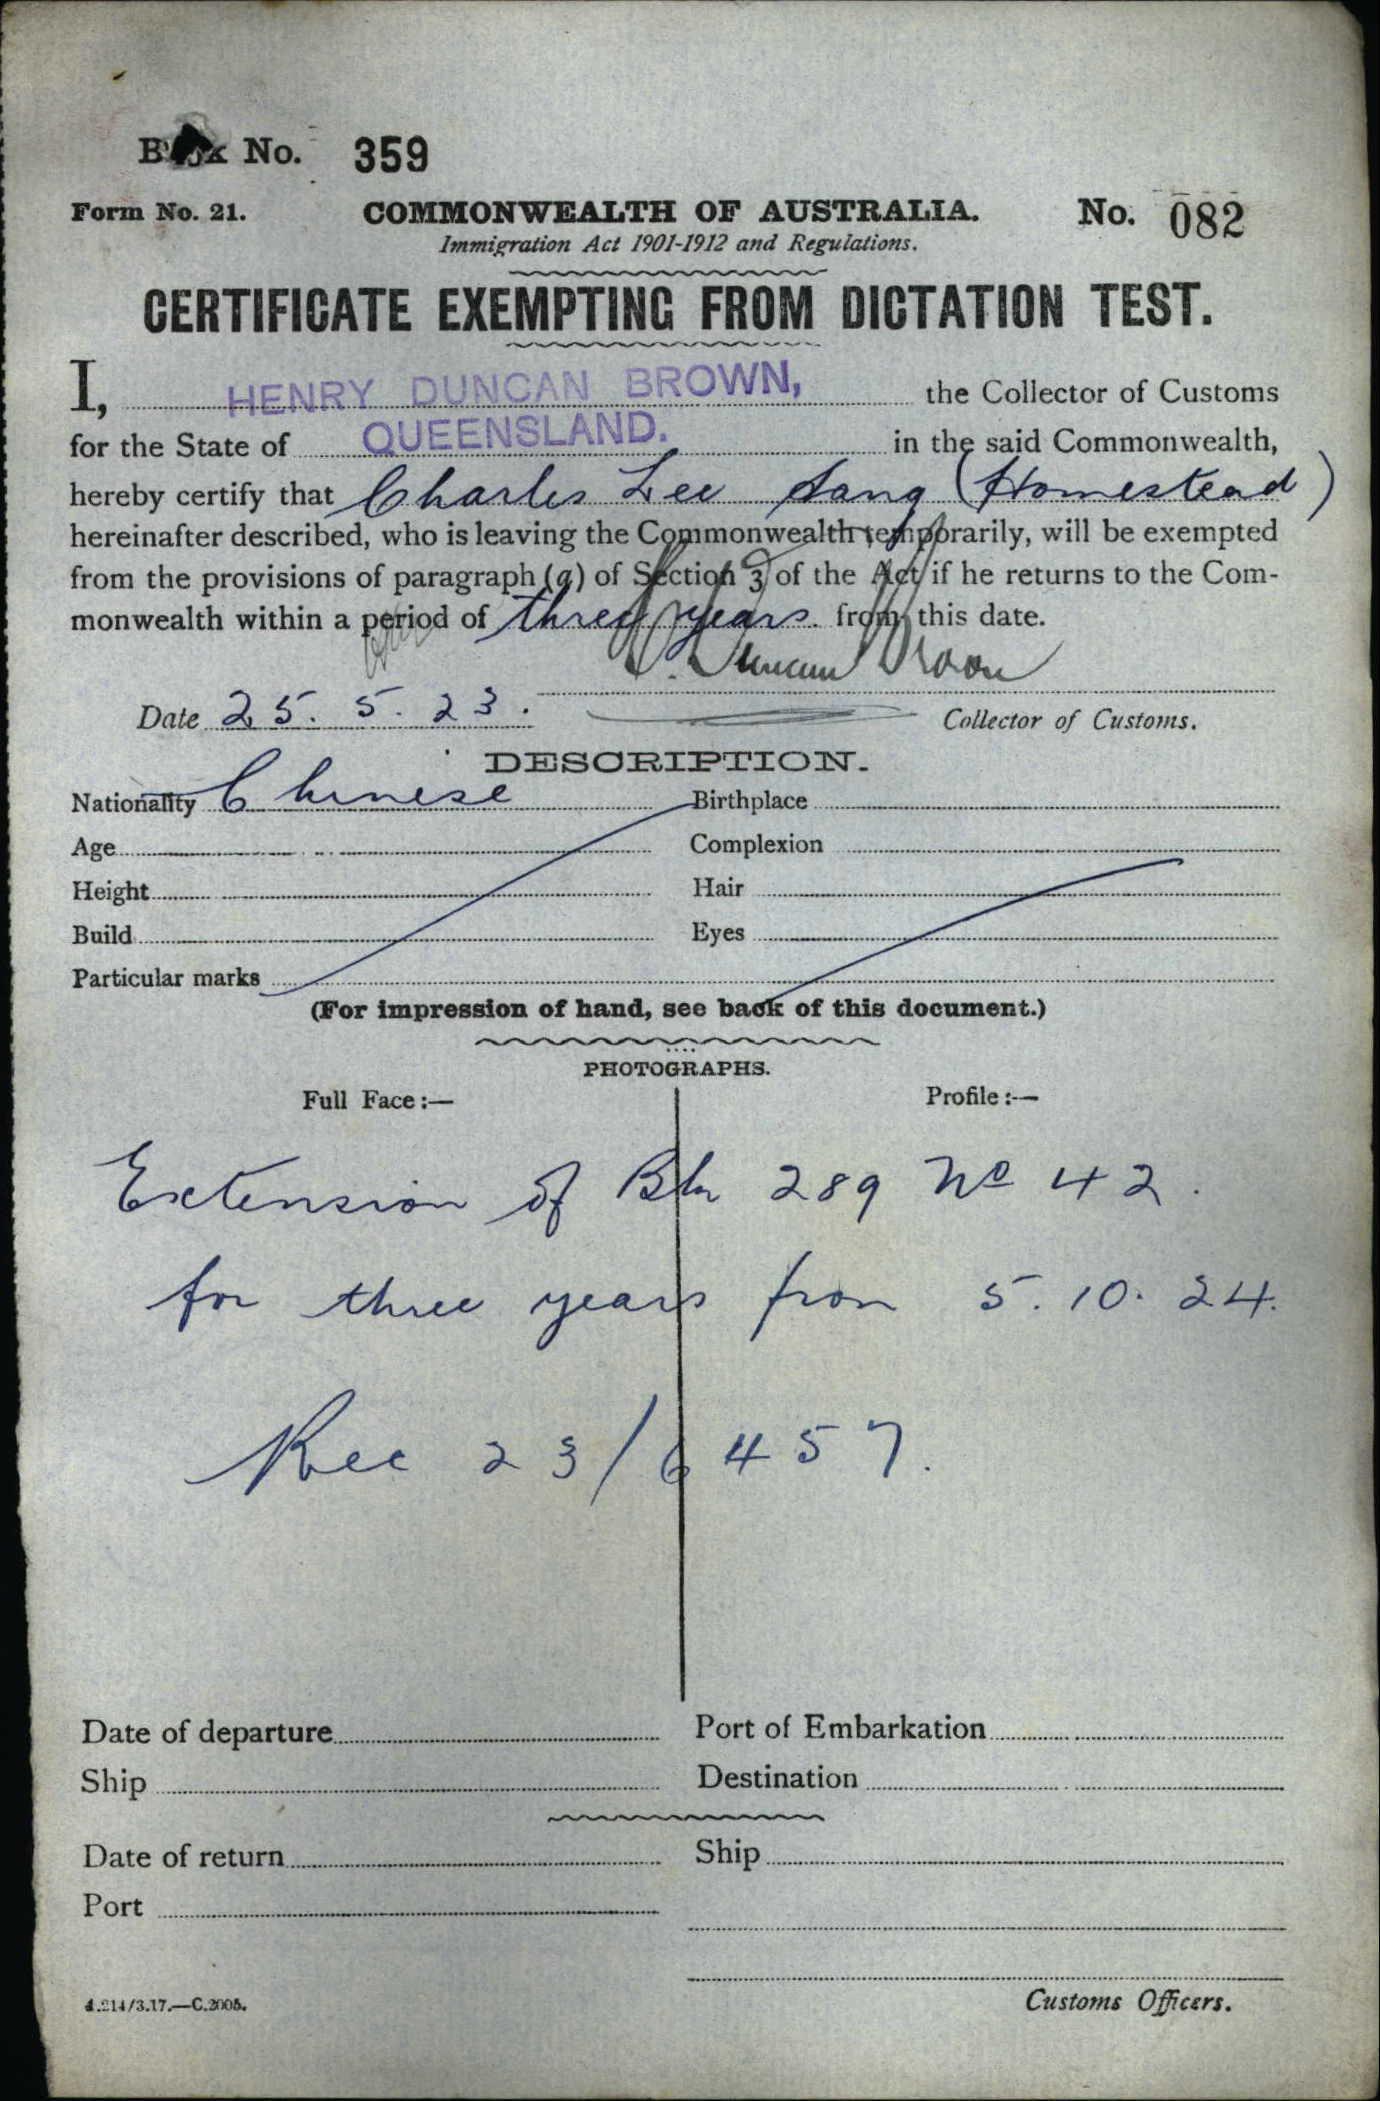 Book No. 359
Form No. 21. COMMONWEALTH OF AUSTRALIA. No. 082
Immigration Act 1901-1912 and Regulations.
CERTIFICATE EXEMPTING FROM DICTATION TEST.
I, HENRY DUNCAN BROWN, the Collector of Customs
for the State of QUEENSLAND. in the said Commonwealth,
hereby certify that Charles Lee Sang (Homestead)
hereinafter described, who is leaving the Commonwealth temporarily, will be exempted
from the provisions of paragraph (a) of Section 3 of the Act if he returns to the Com-
monwealth within a period of three years. from this date.
H. Duncan Brown
Date 25. 5. 23. Collector of Customs.
DESCRIPTION.
Nationality Chinese Birthplace
Age Complexion
Height Hair
Build Eyes
Particular marks
(For impression of hand, see back of this document.)
PHOTOGRAPHS.
Full Face:— Profile:—
Extension of Bk 289 No 42.
for three years from 5. 10. 24.
Rec 23/6457.
Date of departure Port of Embarkation
Ship Destination
Date of return Ship
Port
Customs Officers.
4.214/3.17.—C.2005.